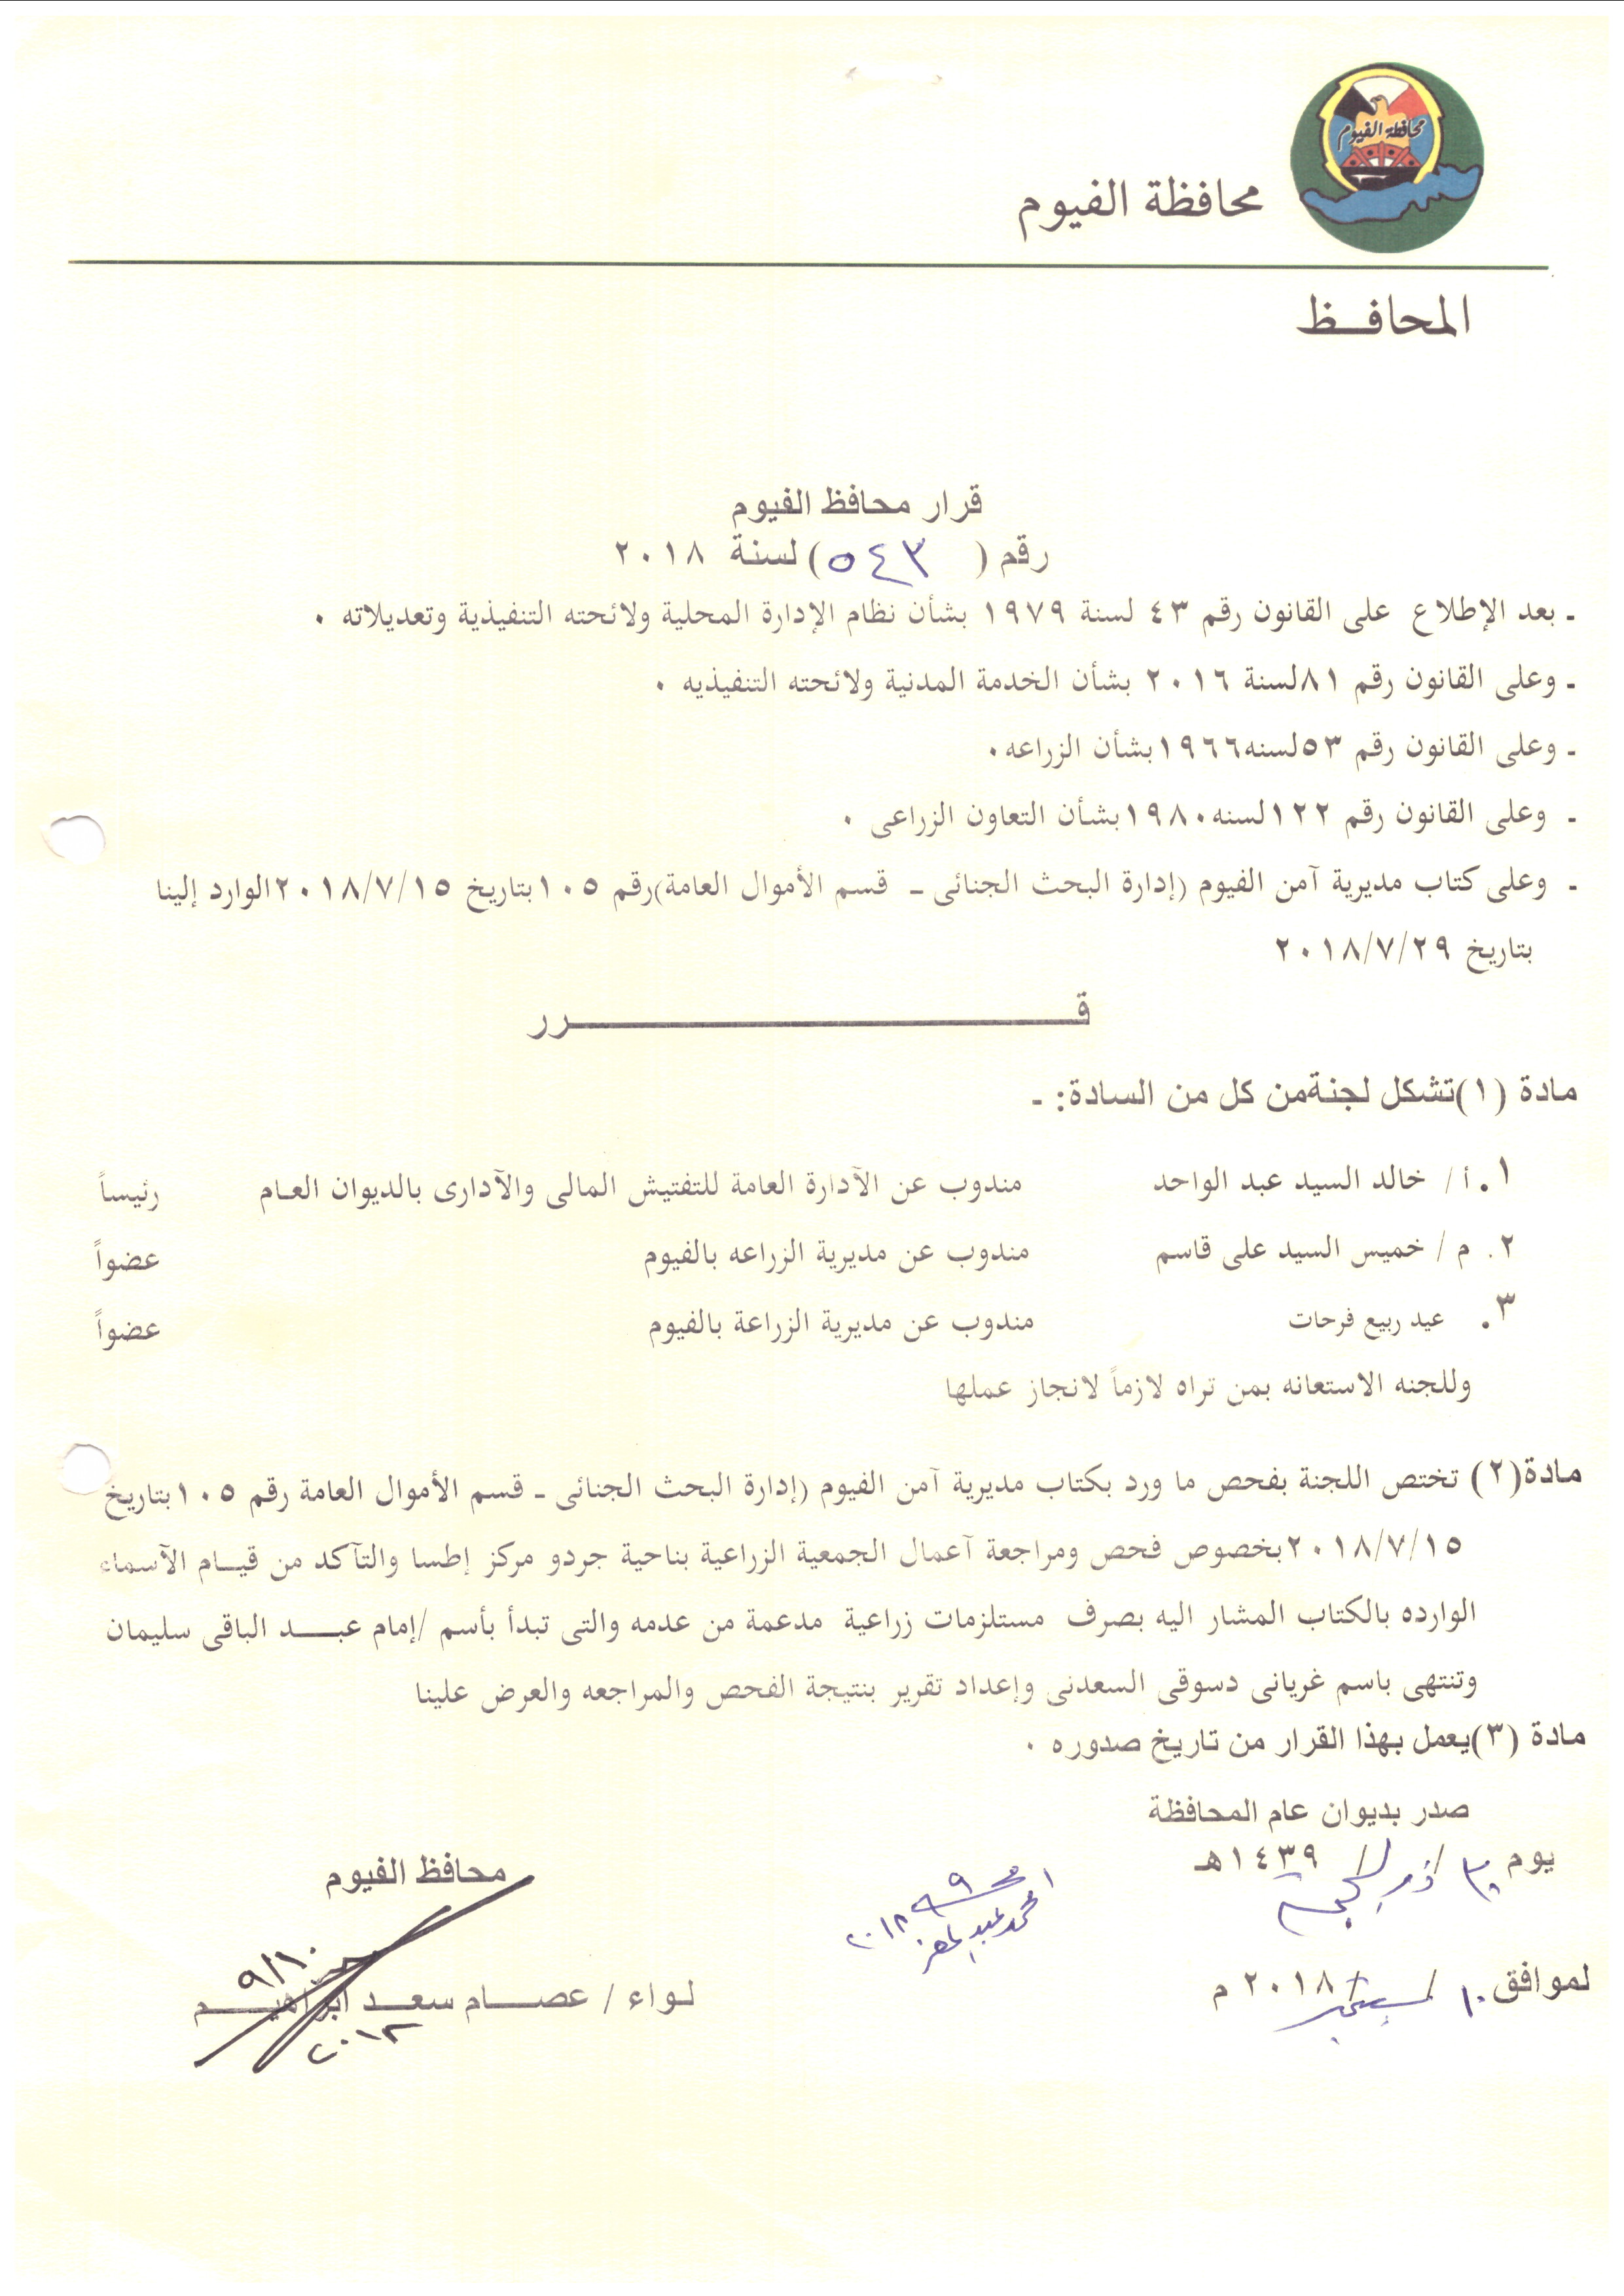 محافظة الفيوم
محافظة الفيوم
المحافـــظ
قرار محافظ الفيوم
رقم ( ٥٤٣ ) لسنة ٢٠١٨
ـ بعد الإطلاع على القانون رقم ٤٣ لسنة ١٩٧٩ بشأن نظام الإدارة المحلية ولائحته التنفيذية وتعديلاته ٠
ـ وعلى القانون رقم ٨١لسنة ٢٠١٦ بشأن الخدمة المدنية ولائحته التنفيذيه ٠
ـ وعلى القانون رقم ٥٣لسنه١٩٦٦بشأن الزراعه٠
ـ وعلى القانون رقم ١٢٢لسنه١٩٨٠بشأن التعاون الزراعى ٠
ـ وعلى كتاب مديرية آمن الفيوم (إدارة البحث الجنائى ـ قسم الأموال العامة)رقم ١٠٥بتاريخ ٢٠١٨/٧/١٥الوارد إلينا
بتاريخ ٢٠١٨/٧/٢٩
قـــــــــــــــــــــــــــــرر
مادة (١)تشكل لجنةمن كل من السادة: ـ
١. أ/ خالد السيد عبد الواحد مندوب عن الآدارة العامة للتفتيش المالى والآدارى بالديوان العـام رئيساً
٢. م / خميس السيد على قاسم مندوب عن مديرية الزراعه بالفيوم عضواً
٣. عيد ربيع فرحات مندوب عن مديرية الزراعة بالفيوم عضواً
وللجنه الاستعانه بمن تراه لازماً لانجاز عملها
مادة(٢) تختص اللجنة بفحص ما ورد بكتاب مديرية آمن الفيوم (إدارة البحث الجنائى ـ قسم الأموال العامة رقم ١٠٥بتاريخ
٢٠١٨/٧/١٥بخصوص فحص ومراجعة آعمال الجمعية الزراعية بناحية جردو مركز إطسا والتآكد من قيـام الآسماء
الوارده بالكتاب المشار اليه بصرف مستلزمات زراعية مدعمة من عدمه والتى تبدأ بأسم /إمام عبـــد الباقى سليمان
وتنتهى باسم غريانى دسوقى السعدنى وإعداد تقرير بنتيجة الفحص والمراجعه والعرض علينا
مادة (٣)يعمل بهذا القرار من تاريخ صدوره ٠
صدر بديوان عام المحافظة
يوم ٣٠ / ذو الحجة / ١٤٣٩هـ
محافظ الفيوم
لموافق ١٠ / سبتمبر / ٢٠١٨ م
لـواء / عصـــام سعــد ابراهيـــم
٩/١٠
٢٠١٨